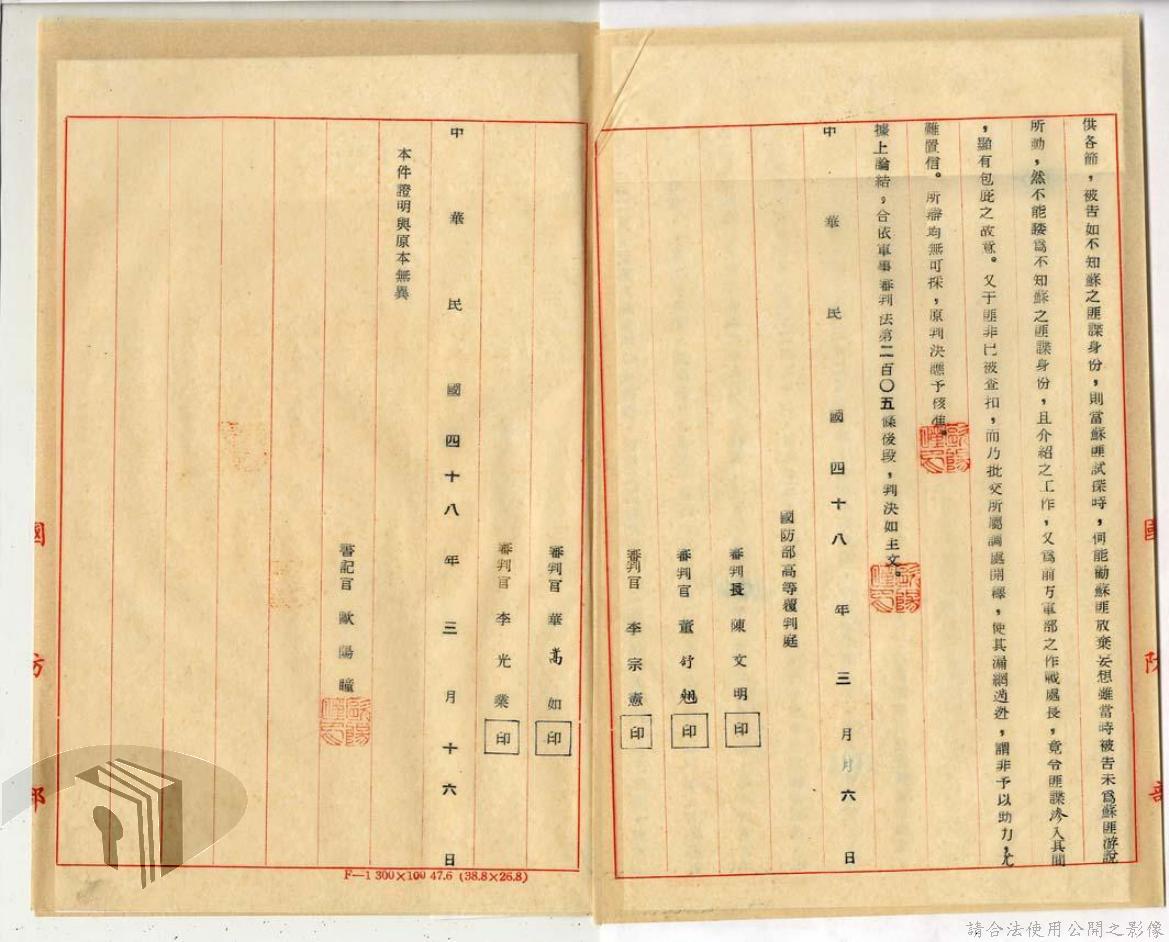 供各節，被告如不知蘇之匪諜身份，則當蘇匪試探時，何能勸蘇匪放棄妄想雖當時被告未爲蘇匪游說
所動，然不能諉爲不知蘇之匪諜身份，且介紹之工作，又爲前方軍部之作戰處長，竟令匪諜滲入其間
，顯有包庇之故意。又于匪非已被查扣，而乃批交所屬調處開釋，使其漏網逍遙，謂非予以助力，尤
難置信。所辯均無可採，原判決應予核准。
據上論結，合依軍事審判法第二百〇五條後段，判決如主文。
中華民國四十八年三月月六日
國防部高等覆判庭
審判長 陳文明 印
審判官 董舒翹 印
審判官 李宗憲 印
國防部
審判官 華嵩如 印
審判官 李光業 印
中華民國四十八年三月十六日
本件證明與原本無異
書記官 歐陽瞳
國防部
F—1 300×100 47.6 (38.8×26.8)
請合法使用公開之影像